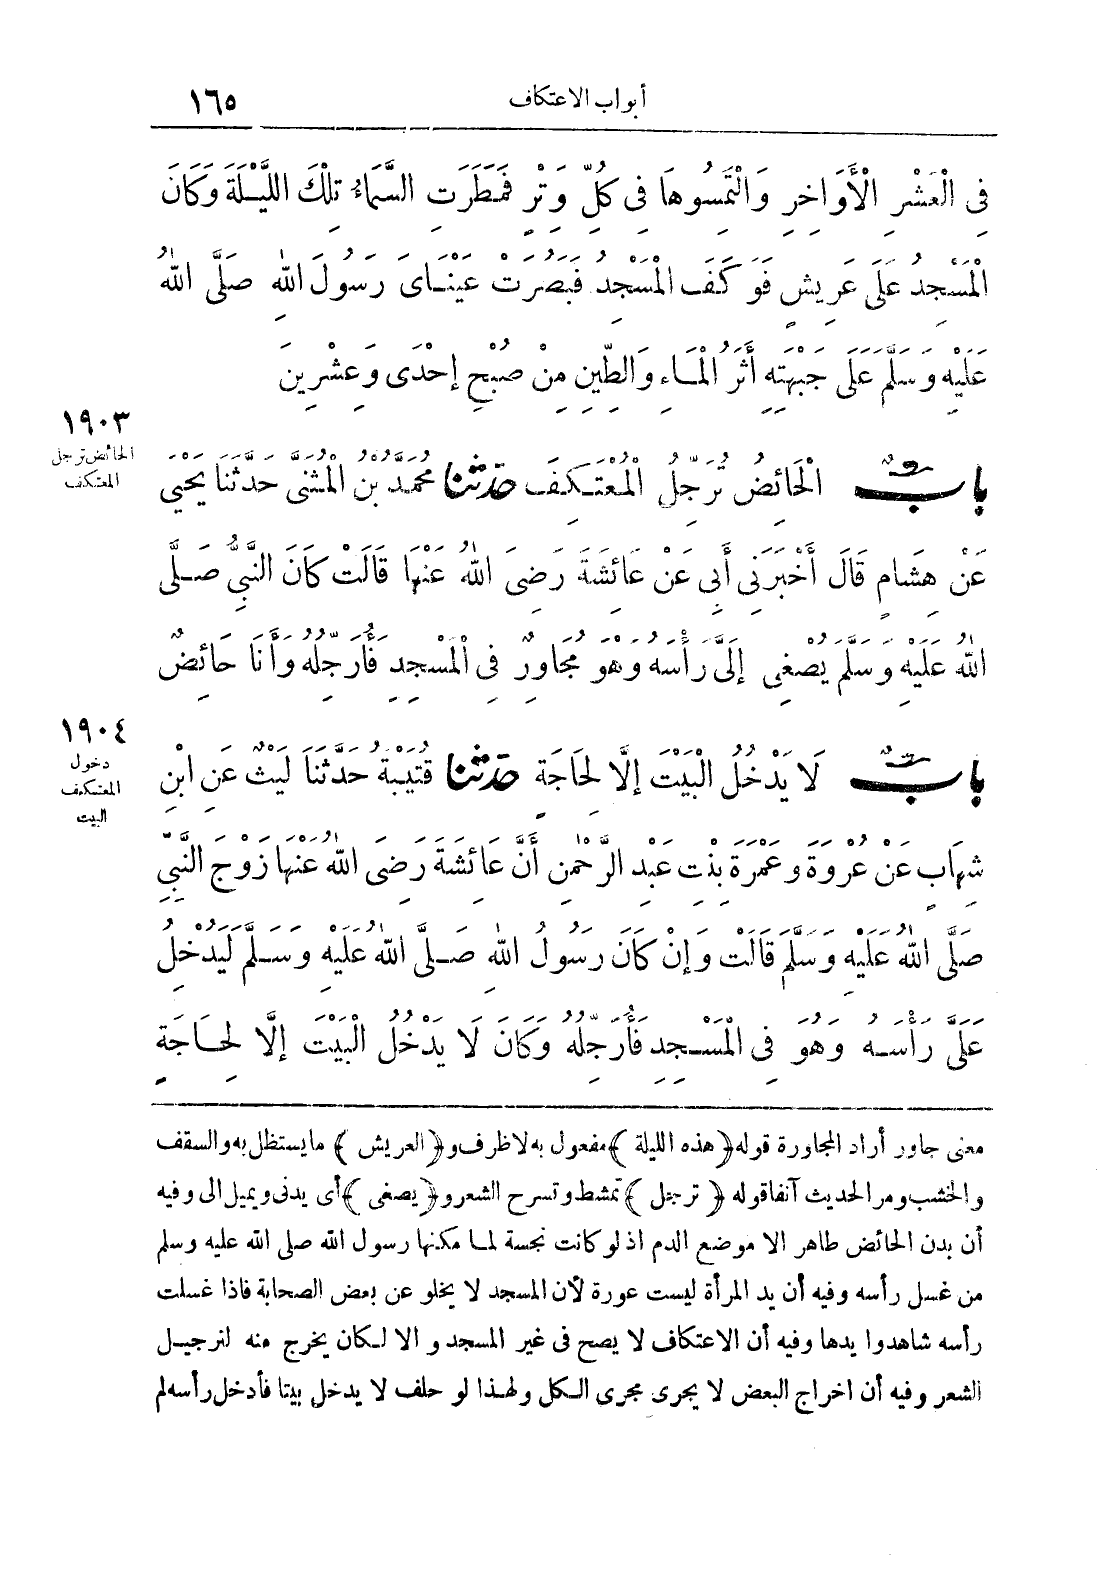 أبواب الاعتكاف ١٦٥
فِى الْعَشْرِ الْأَوَاخِرِ وَالْتَمِسُوهَا فِى كُلِّ وَتْرٍ فَمَطَرَتِ السَّمَاءُ تِلْكَ اللَّيْلَةَ وَكَانَ
الْمَسْجِدُ عَلَى عَرِيشٍ فَوَكَفَ الْمَسْجِدُ فَبَصُرَتْ عَيْنَاىَ رَسُولَ اللهِ صَلَّى اللهُ
عَلَيْهِ وَسَلَّمَ عَلَى جَبْهَتِهِ أَثَرُ الْمَاءِ وَالطِّينِ مِنْ صُبْحِ إِحْدَى وَعِشْرِينَ
١٩٠٣
الحائض ترجل
المعتكف
بابٌ الْحَائِضُ تُرَجِّلُ الْمُعْتَكِفَ حدثنا مُحَمَّدُ بْنُ الْمُثَنَّى حَدَّثَنَا يَحْيَى
عَنْ هِشَامٍ قَالَ أَخْبَرَنِى أَبِى عَنْ عَائِشَةَ رَضِىَ اللهُ عَنْهَا قَالَتْ كَانَ النَّبِىُّ صَلَّى
اللهُ عَلَيْهِ وَسَلَّمَ يُصْغِى إِلَىَّ رَأْسَهُ وَهُوَ مُجَاوِرٌ فِى الْمَسْجِدِ فَأُرَجِّلُهُ وَأَنَا حَائِضٌ
١٩٠٤
دخول
المعتكف
البيت
بابٌ لَا يَدْخُلُ الْبَيْتَ إِلَّا لِحَاجَةٍ حدثنا قُتَيْبَةُ حَدَّثَنَا لَيْثٌ عَنِ ابْنِ
شِهَابٍ عَنْ عُرْوَةَ وَعَمْرَةَ بِنْتِ عَبْدِ الرَّحْمٰنِ أَنَّ عَائِشَةَ رَضِىَ اللهُ عَنْهَا زَوْجَ النَّبِىِّ
صَلَّى اللهُ عَلَيْهِ وَسَلَّمَ قَالَتْ وَإِنْ كَانَ رَسُولُ اللهِ صَلَّى اللهُ عَلَيْهِ وَسَلَّمَ لَيُدْخِلُ
عَلَىَّ رَأْسَهُ وَهُوَ فِى الْمَسْجِدِ فَأُرَجِّلُهُ وَكَانَ لَا يَدْخُلُ الْبَيْتَ إِلَّا لِحَاجَةٍ
معنى جاور أراد المجاورة قوله ﴿هذه الليلة﴾ مفعول به لا ظرف و﴿العريش﴾ ما يستظل به والسقف
والخشب ومر الحديث آنفا قوله ﴿ترجل﴾ تمشط وتسرح الشعر و﴿يصغى﴾ أى يدنى ويميل الى وفيه
أن بدن الحائض طاهر الا موضع الدم اذ لو كانت نجسة لما مكنها رسول الله صلى الله عليه وسلم
من غسل رأسه وفيه أن يد المرأة ليست عورة لأن المسجد لا يخلو عن بعض الصحابة فاذا غسلت
رأسه شاهدوا يدها وفيه أن الاعتكاف لا يصح فى غير المسجد و الا لكان يخرج منه لترجيل
الشعر وفيه أن اخراج البعض لا يجرى مجرى الكل ولهذا لو حلف لا يدخل بيتا فأدخل رأسه لم